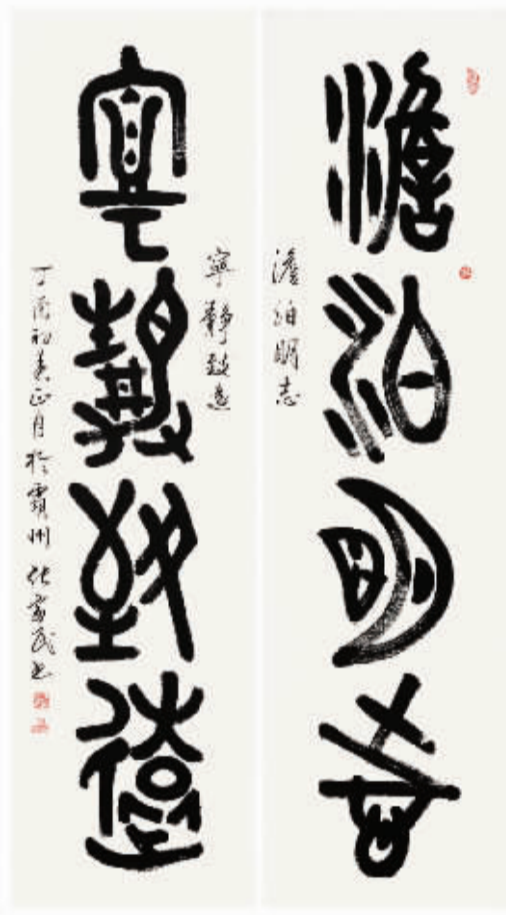 澹泊明志
澹泊明志
寧靜致遠
寧靜致遠
丁酉初春正月於霸州